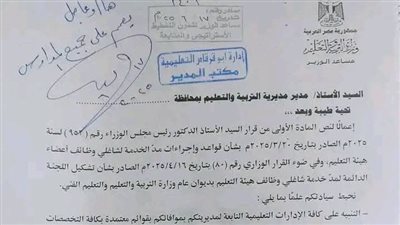 جمهورية مصر العربية
وزارة التربية والتعليم
مساعد الوزير
هام وعاجل
يعمم على جميع المدارس
صادر رقم / ١٤٠١
بتاريخ ١٧ / ٦ / ٢٠٢٥
مساعد الوزير للشئون التخطيط
الاستراتيجي والمتابعة
إدارة أبو قرقاص التعليمية
مكتب المدير
السيد الأستاذ/ مدير مديرية التربية والتعليم بمحافظة
تحية طيبة وبعد ...
إعمالًا لنص المادة الأولى من قرار السيد الأستاذ الدكتور رئيس مجلس الوزراء رقم (٩٥٣) لسنة
٢٠٢٥م الصادر بتاريخ ٢٠٢٥/٣/٢٠م بشأن قواعد وإجراءات مد الخدمة لشاغلي وظائف أعضاء
هيئة التعليم، وفي ضوء القرار الوزاري رقم (٨٠) بتاريخ ٢٠٢٥/٤/١٦م الصادر بشأن تشكيل اللجنة
الدائمة لمد الخدمة لشاغلي وظائف هيئة التعليم بديوان عام وزارة التربية والتعليم والتعليم الفني.
نحيط سيادتكم علمًا بما يلي:
- التنبيه على كافة الإدارات التعليمية التابعة لمديريتكم بموافاتكم بقوائم معتمدة بكافة التخصصات